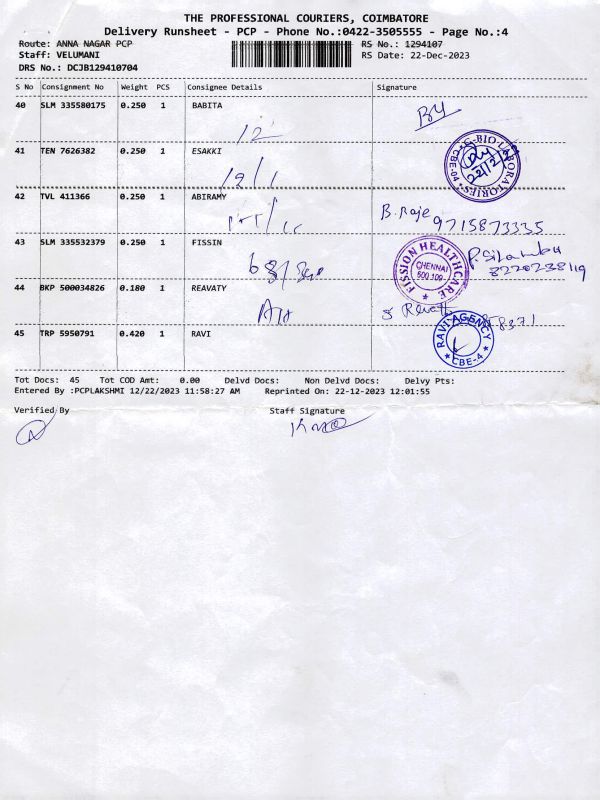 THE PROFESSIONAL COURIERS, COIMBATORE
Delivery Runsheet - PCP - Phone No.:0422-3505555 - Page No.:4
Route: ANNA NAGAR PCP RS No.: 1294107
Staff: VELUMANI RS Date: 22-Dec-2023
DRS No.: DCJB129410704
S No Consignment No Weight PCS Consignee Details Signature
40 SLM 335580175 0.250 1 BABITA
12
41 TEN 7626382 0.250 1 ESAKKI
G-BIO LABORATORIES
CBE-04
42 TVL 411366 0.250 1 ABIRAMY
B. Raje 9715873335
43 SLM 335532379 0.250 1 FISSIN
FISSION HEALTHCARE
CHENNAI
600 100
44 BKP 500034826 0.180 1 REAVATY
45 TRP 5950791 0.420 1 RAVI
RAVI AGENCY
CBE-4
Tot Docs: 45 Tot COD Amt: 0.00 Delvd Docs: Non Delvd Docs: Delvy Pts:
Entered By :PCPLAKSHMI 12/22/2023 11:58:27 AM Reprinted On: 22-12-2023 12:01:55
Verified By Staff Signature